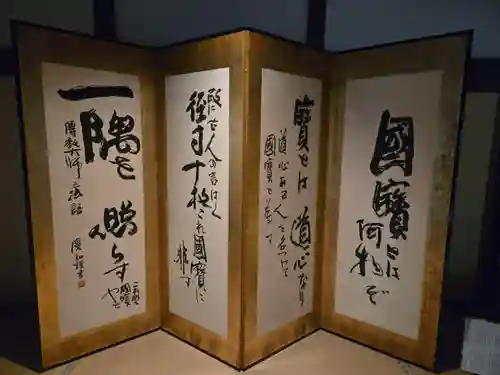 國寶とは
何物ぞ
寶とは道心なり
道心ある人を名づけて
國寶と為す
故に古人の言はく
径寸十枚これ國寶に
非ず
一隅を
照らす
國寶
傳教大師之法語